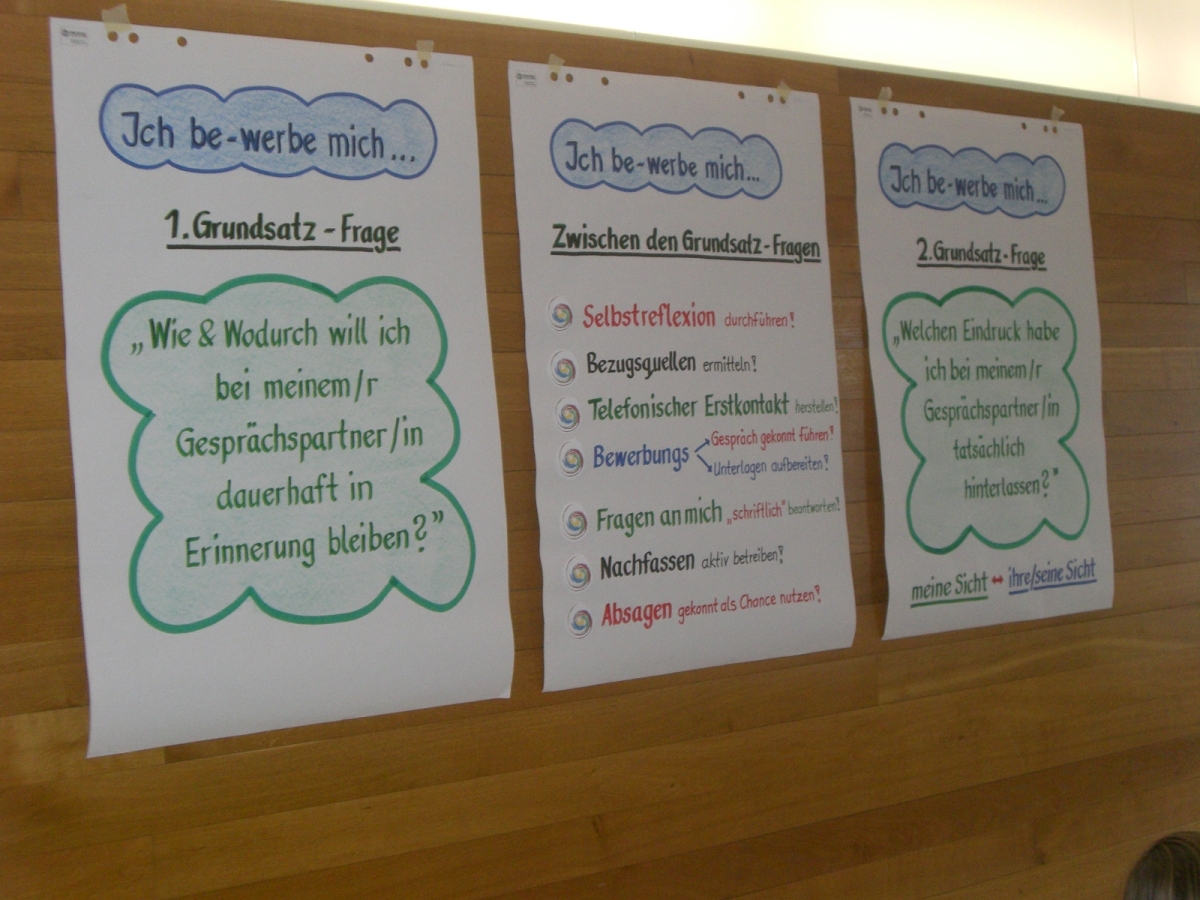 Ich be-werbe mich...
1. Grundsatz - Frage
„Wie & Wodurch will ich
bei meinem/r
Gesprächspartner/in
dauerhaft in
Erinnerung bleiben?”
Ich be-werbe mich...
Zwischen den Grundsatz-Fragen
Selbstreflexion durchführen!
Bezugsquellen ermitteln!
Telefonischer Erstkontakt herstellen!
Gespräch gekonnt führen!
Bewerbungs
Unterlagen aufbereiten!
Fragen an mich „schriftlich" beantworten!
Nachfassen aktiv betreiben!
Absagen gekonnt als Chance nutzen!
Ich be-werbe mich...
2. Grundsatz-Frage
„Welchen Eindruck habe
ich bei meinem/r
Gesprächspartner/in
tatsächlich
hinterlassen?”
meine Sicht ↔ ihre/seine Sicht